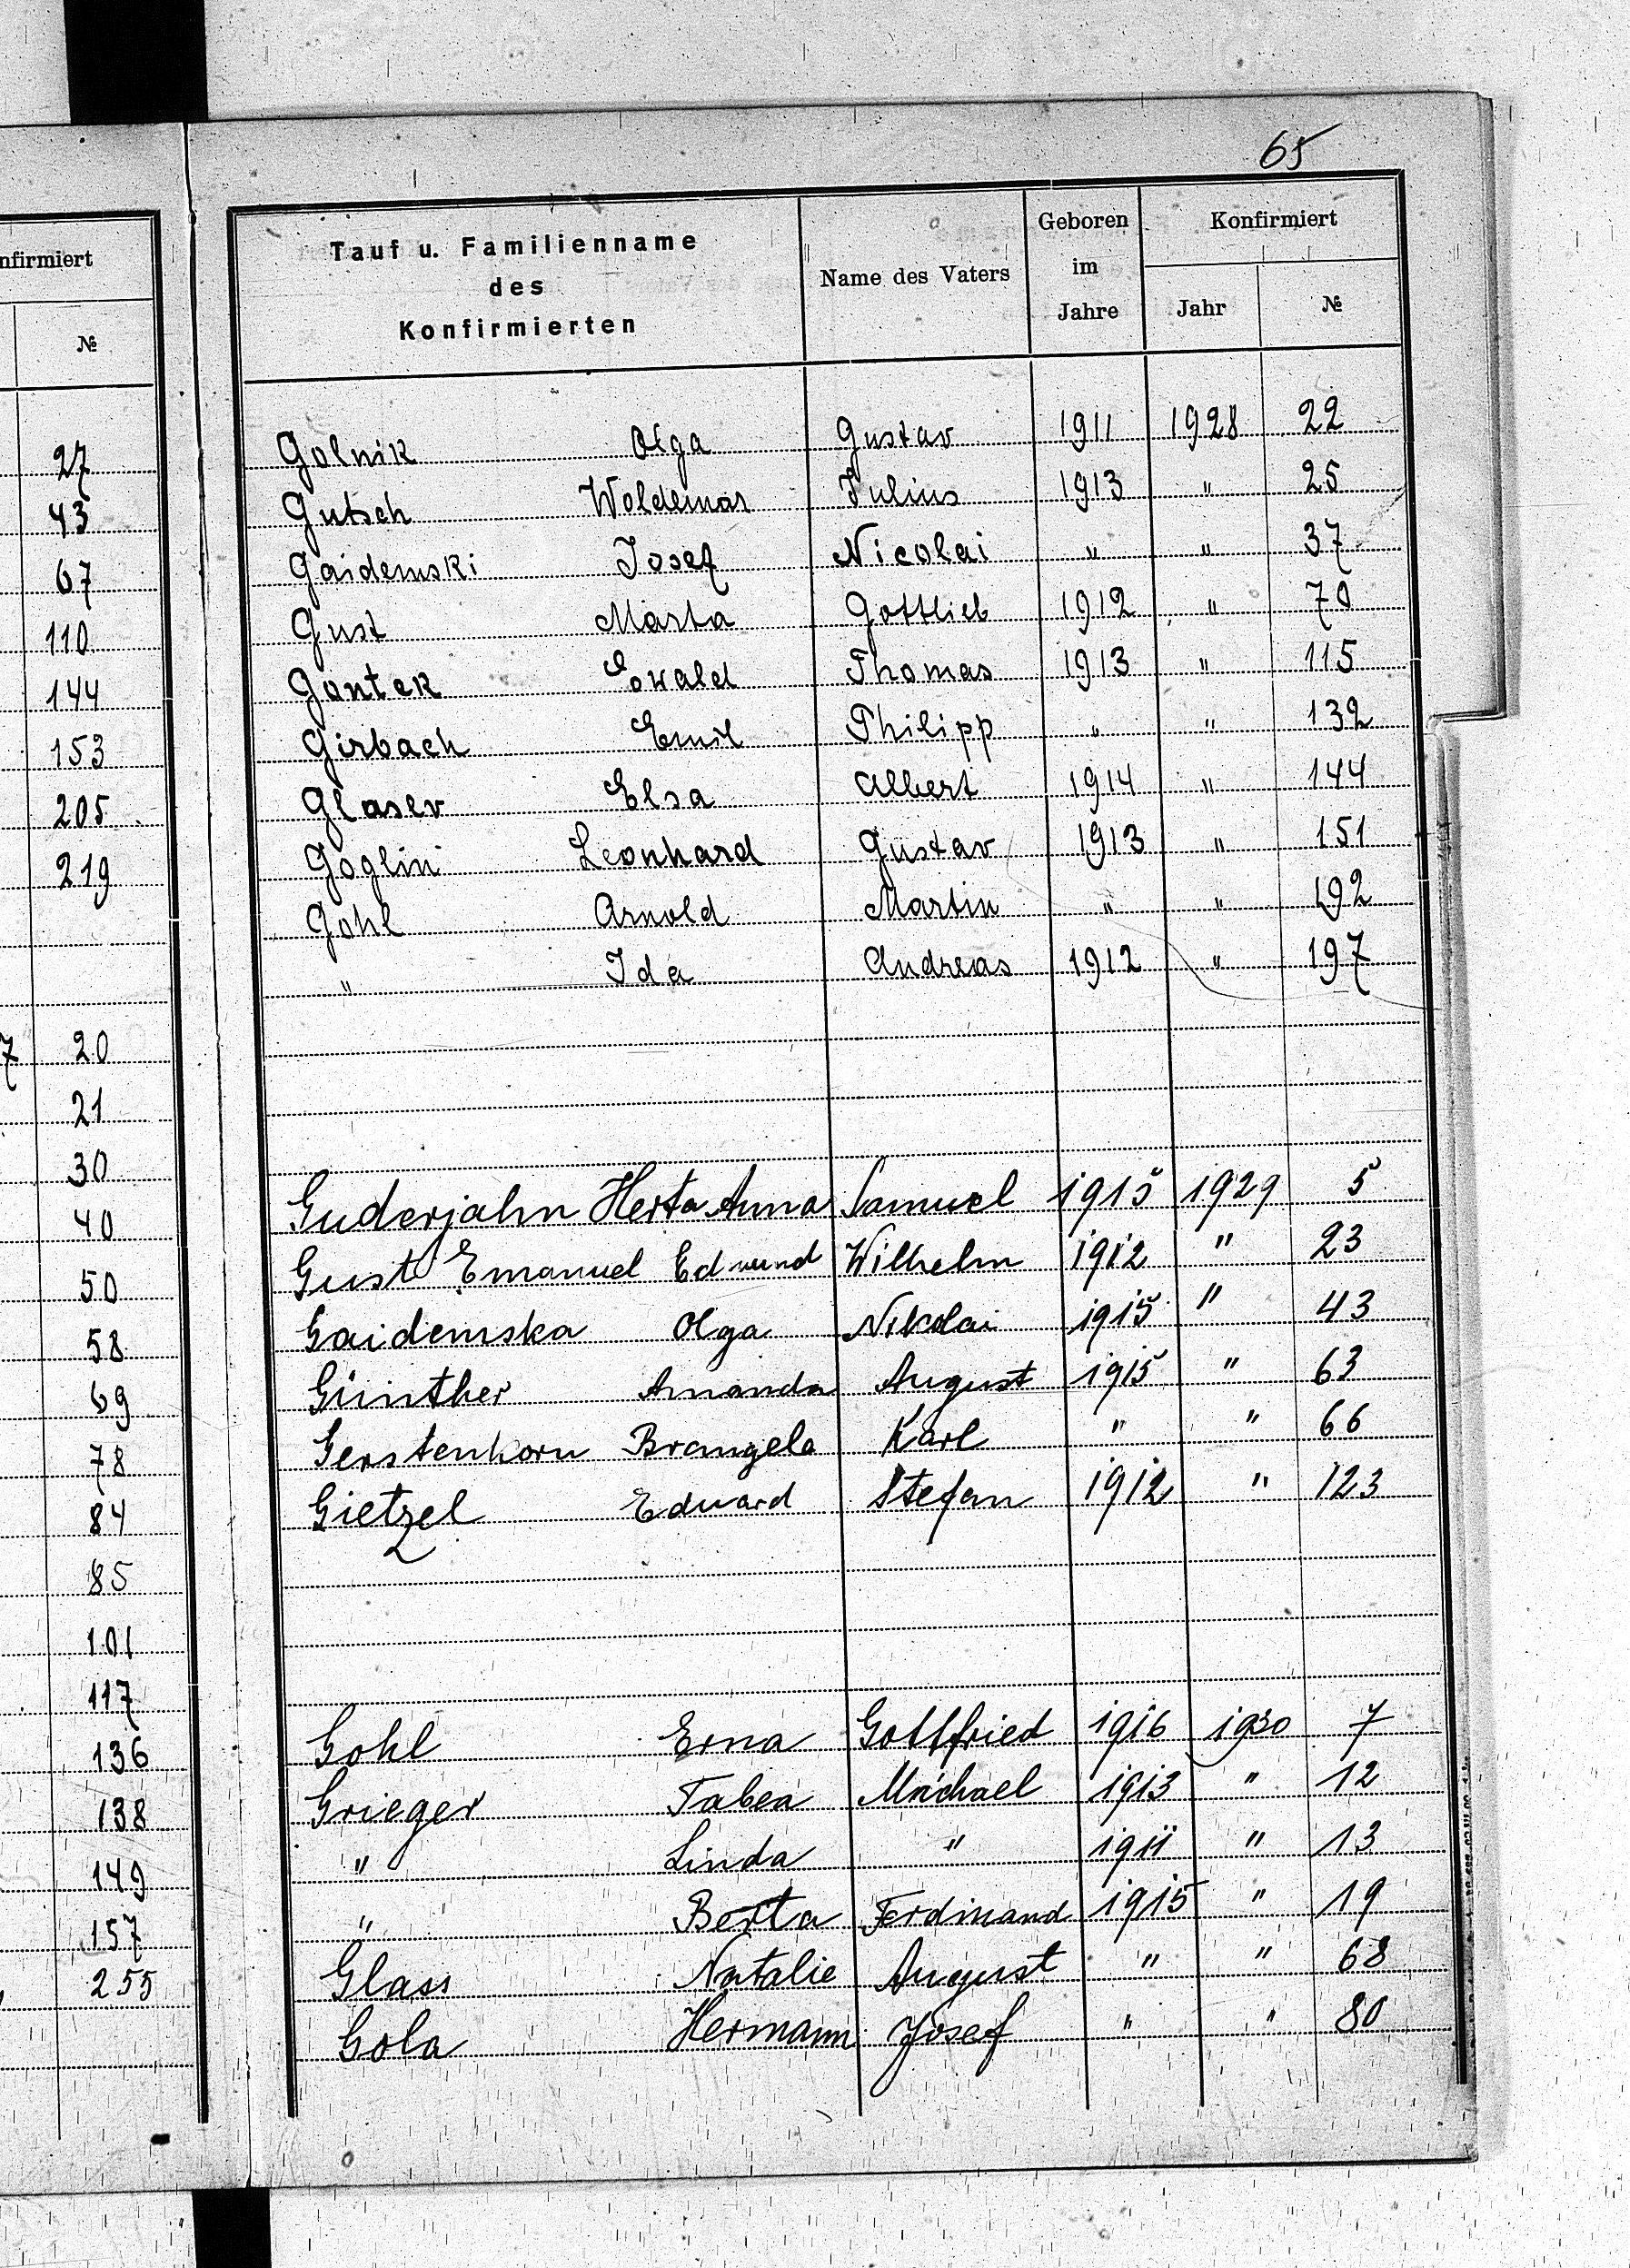 nfirmiert
№
27
43
67
110
144
153
205
219
7 20
21
30
40
50
58
69
78
84
85
101
117
136
138
149
157
255
65
Tauf u. Familienname
des
Konfirmierten
Name des Vaters
Geboren
im
Jahre
Konfirmiert
Jahr
№
Golnik Olga Gustav 1911 1928 22
Gutsch Woldemar Julius 1913 " 25
Gaidemski Josef Nicolai " " 37
Gust Marta Gottlieb 1912 " 70
Gontek Ewald Thomas 1913 " 115
Girbach Emil Philipp " " 132
Glaser Elsa Albert 1914 " 144
Goglin Leonhard Gustav 1913 " 151
Gohl Arnold Martin " " 192
" Ida Andreas 1912 " 197
Guderjahn Herta Anna Samuel 1915 1929 5
Gust Emanuel Edmund Wilhelm 1912 " 23
Gaidemska Olga Nikolai 1915 " 43
Günther Amanda August 1915 " 63
Gerstenkorn Brangela Karl " " 66
Gietzel Eduard Stefan 1912 " 123
Gohl Erna Gottfried 1916 1930 7
Grieger Tabea Michael 1913 " 12
" Linda " 1911 " 13
" Berta Ferdinand 1915 " 19
Glass Natalie August " " 68
Gola Hermann Josef " " 80